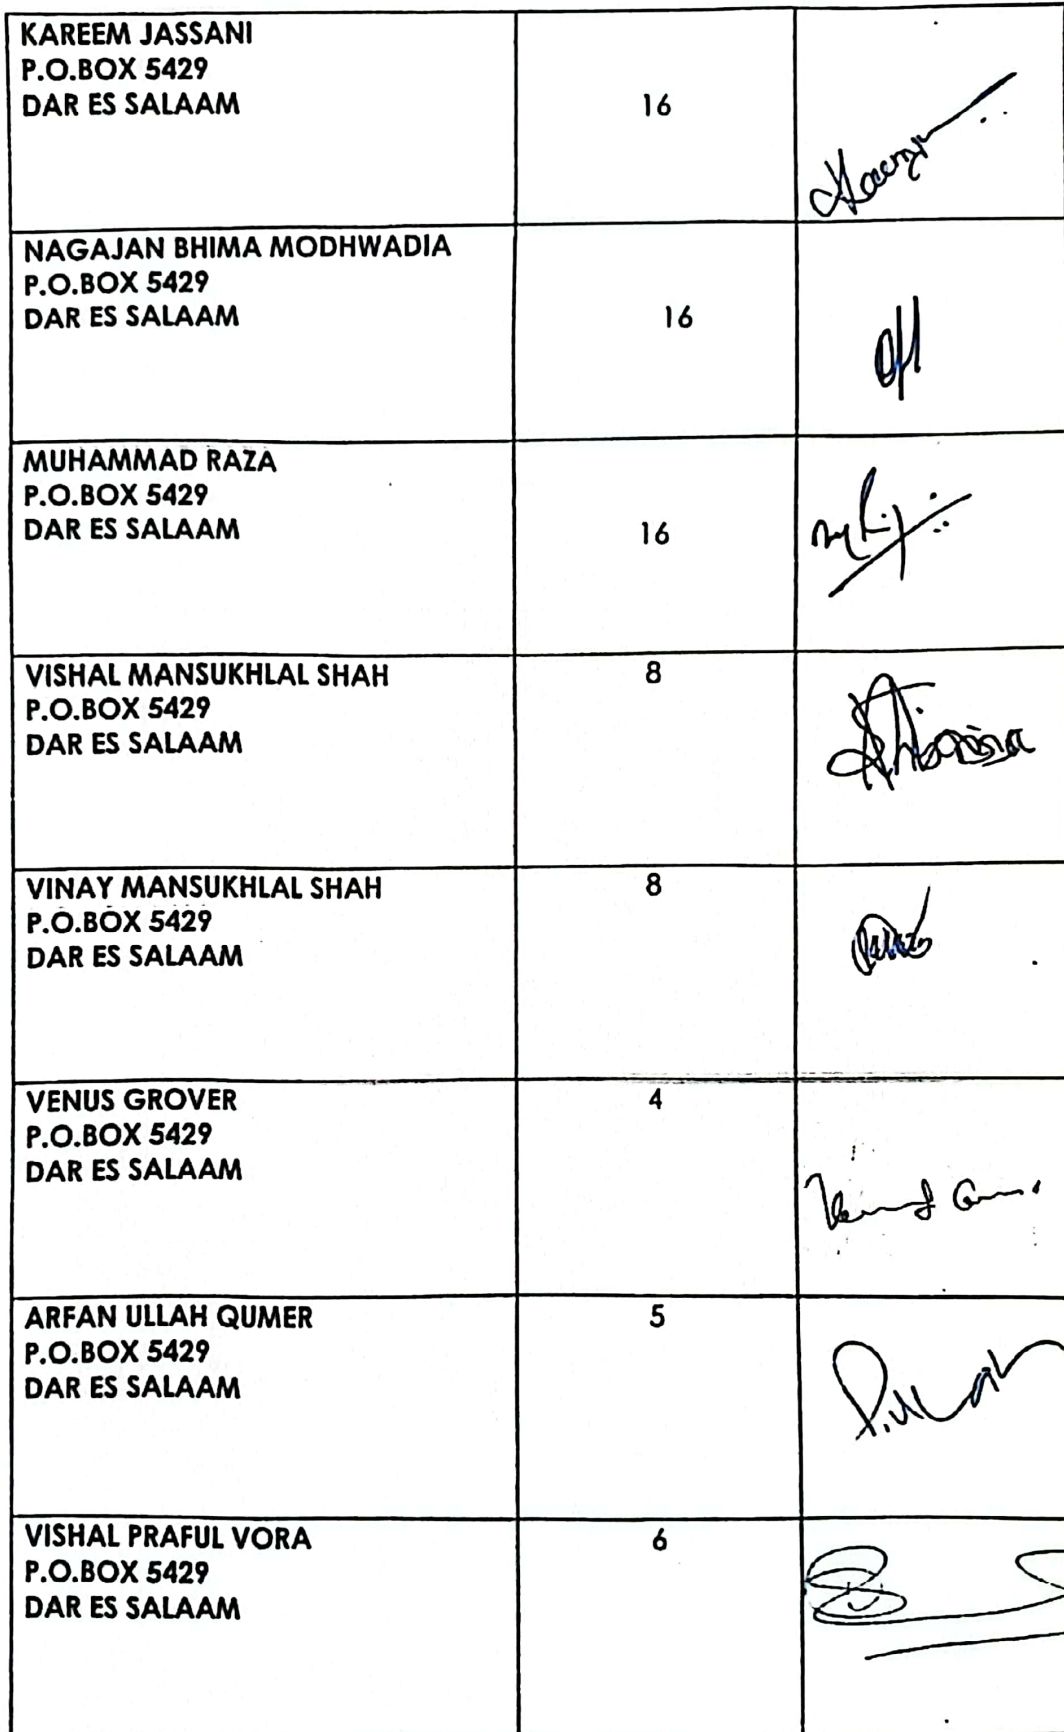 KAREEM JASSANI
P.O.BOX 5429
DAR ES SALAAM
16
NAGAJAN BHIMA MODHWADIA
P.O.BOX 5429
DAR ES SALAAM
16
MUHAMMAD RAZA
P.O.BOX 5429
DAR ES SALAAM
16
VISHAL MANSUKHLAL SHAH
8
P.O.BOX 5429
DAR ES SALAAM
VINAY MANSUKHLAL SHAH
8
P.O.BOX 5429
DAR ES SALAAM
VENUS GROVER
4
P.O.BOX 5429
DAR ES SALAAM
ARFAN ULLAH QUMER
5
P.O.BOX 5429
DAR ES SALAAM
VISHAL PRAFUL VORA
6
P.O.BOX 5429
DAR ES SALAAM